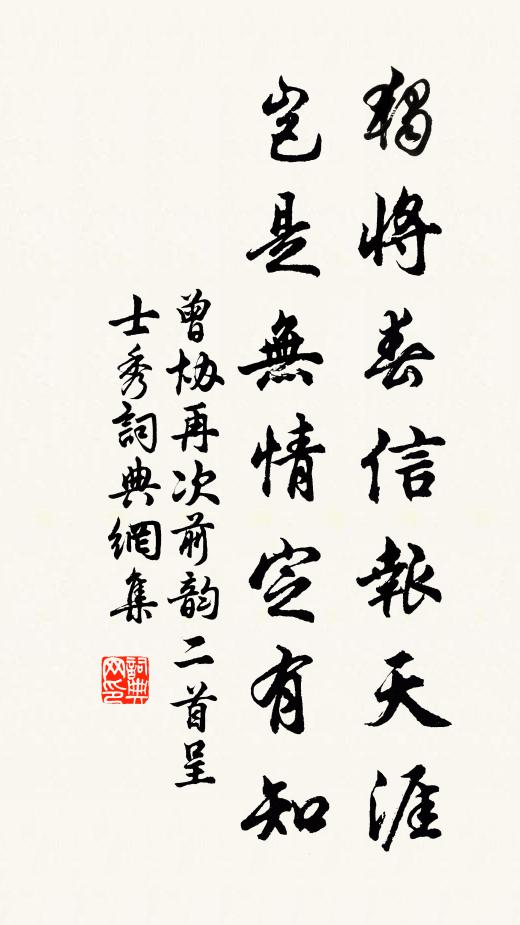 獨將春信報天涯
豈是無情定有知
曾協再次前韵二首呈
士秀詞典網集
詞典网印